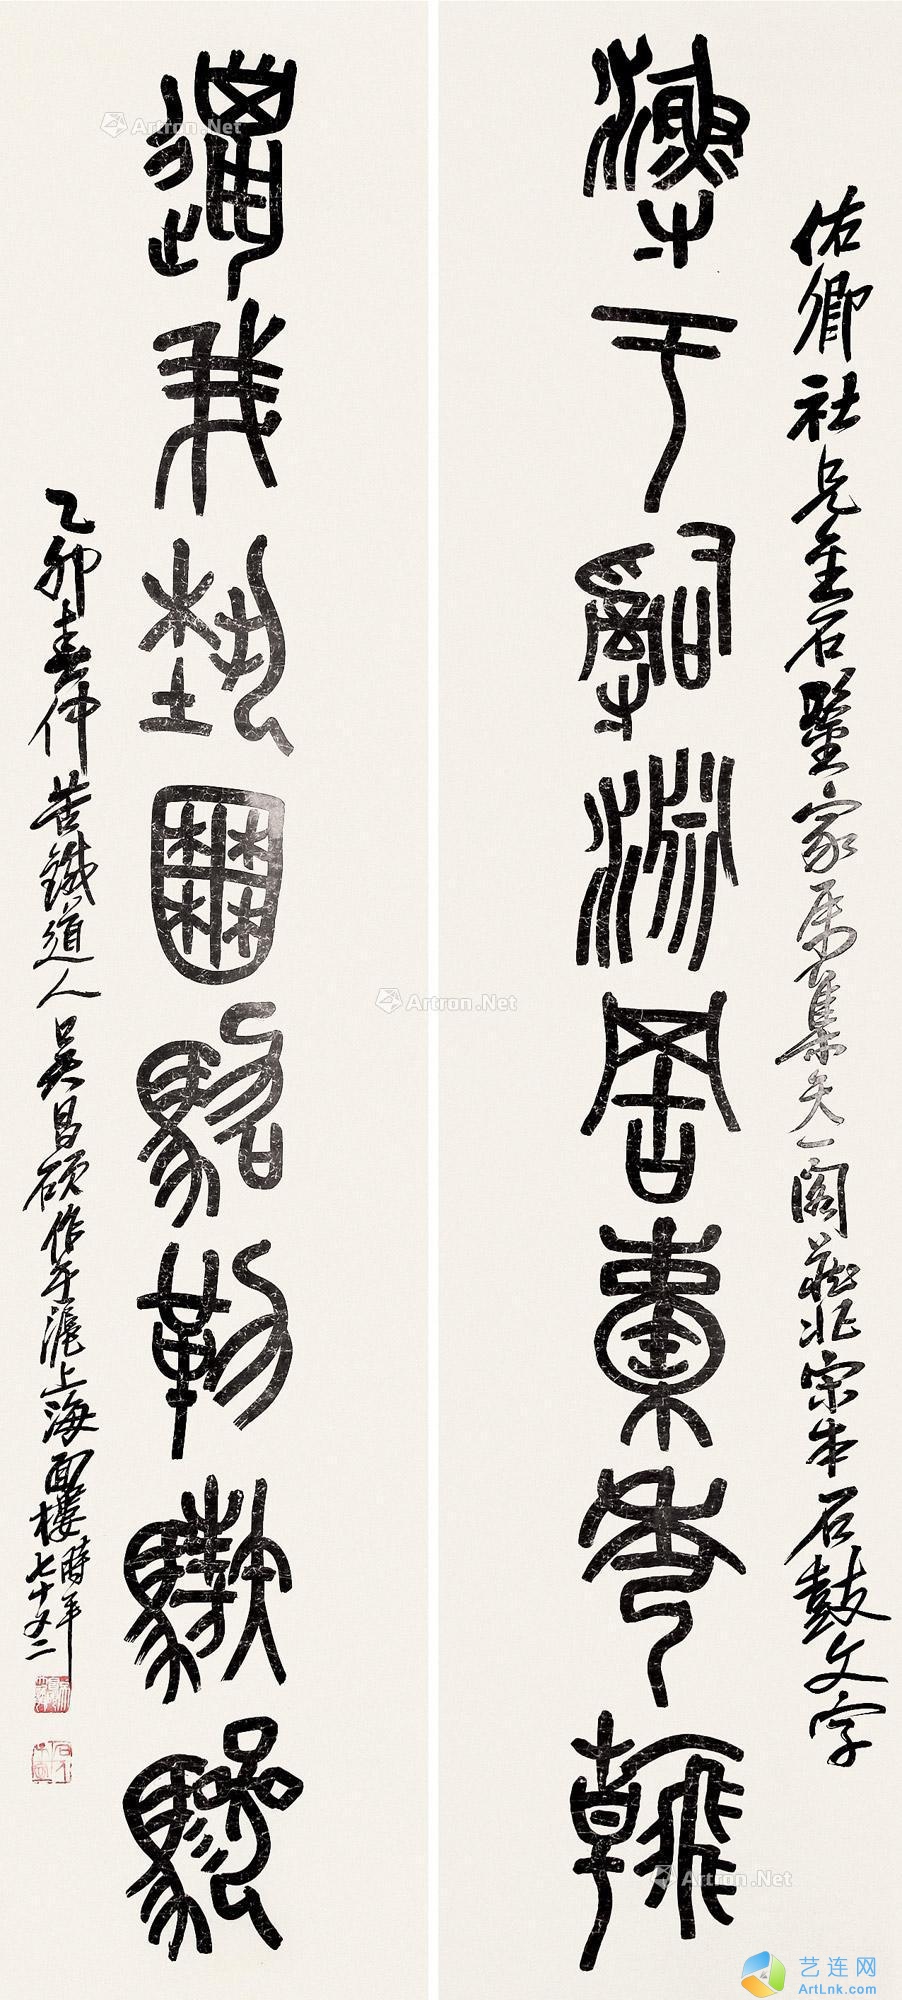 佑卿社兄金石鑒家屬集天一閣藏北宋本石鼓文字
漁于淵周秀翰
我藝囿駱勒驂
乙卯春仲苦鐵道人吳昌碩作于滬上海樓時年七十又二
Artron.Net
Artron.Net
Artron.Net
艺连网
ArtLnk.com